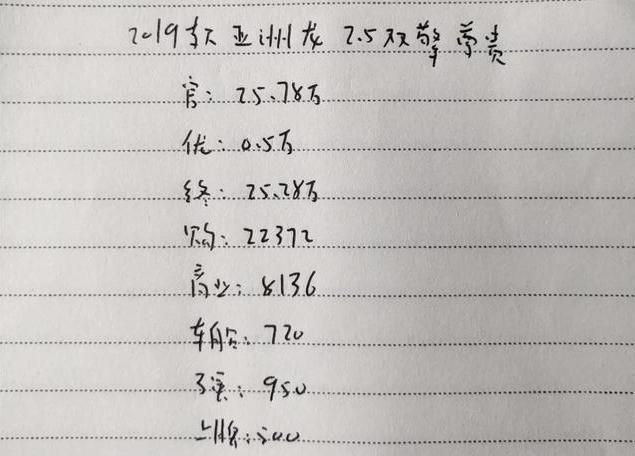 2019款 亚洲龙 2.5双擎尊贵
官: 25.78万
优: 0.5万
终: 25.28万
购: 22372
商业: 8136
车船: 720
交强: 950
上牌: 500